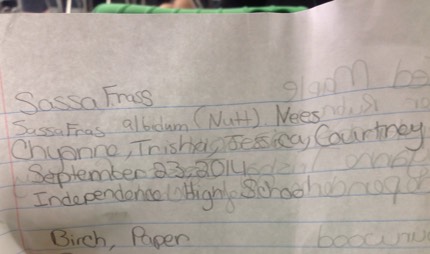 Sassa Frass
SassaFras albidum (Nutt) Nees
Chyanne, Trisha, Jessica, Courtney
September 23, 2014
Independence High School
Birch, Paper